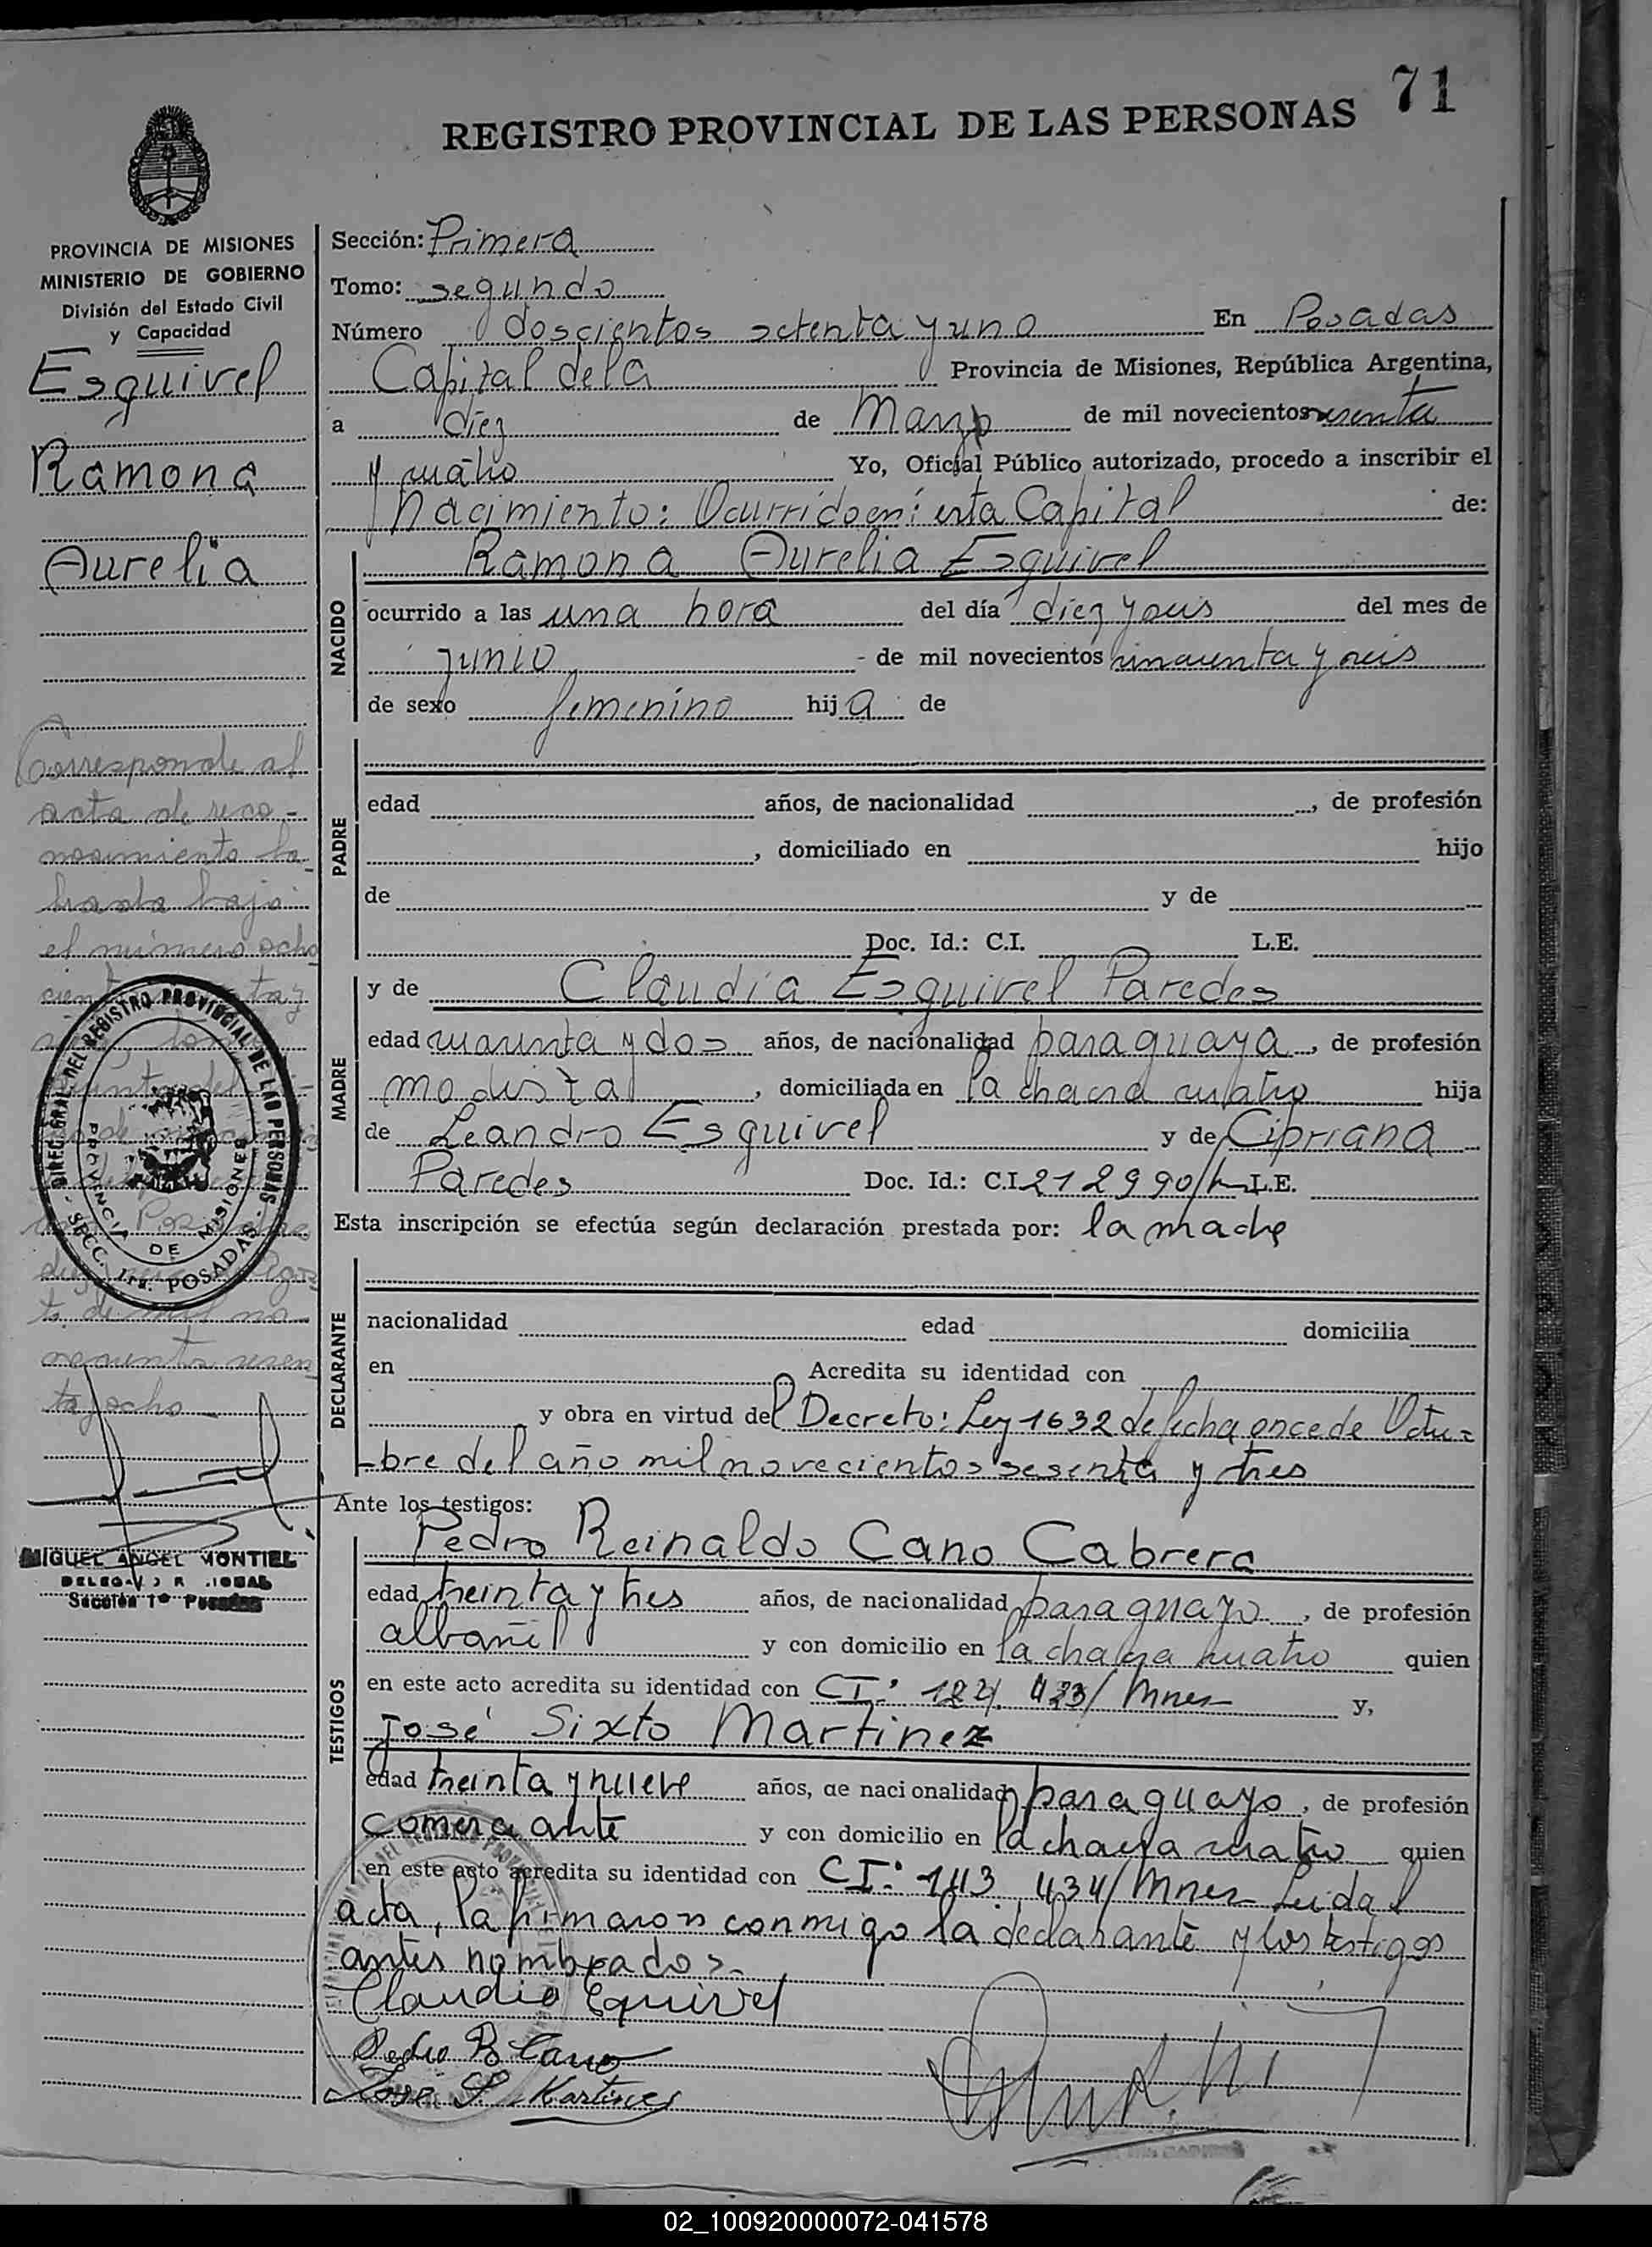 71
REGISTRO PROVINCIAL DE LAS PERSONAS
PROVINCIA DE MISIONES
MINISTERIO DE GOBIERNO
División del Estado Civil
y Capacidad
Esquivel
Ramona
Aurelia
Corresponde al
acta de reco-
nocimiento la-
brada bajo
el número ocho
cien
de
to de mil no
vecientos sesen
ta y ocho
DIREC. GRAL. DEL REGISTRO PROVINCIAL DE LAS PERSONAS
PROVINCIA DE MISIONES
SECC. 1ra. POSADAS
MIGUEL ANGEL MONTIEL
Sección 1ª Posadas
Sección: Primera
Tomo: segundo
Número doscientos setenta y uno En Posadas
Capital de la Provincia de Misiones, República Argentina,
a diez de Marzo de mil novecientos sesenta
y cuatro Yo, Oficial Público autorizado, procedo a inscribir el
Nacimiento: Ocurrido en: esta Capital de:
NACIDO
Ramona Aurelia Esquivel
ocurrido a las una hora del día diez y seis del mes de
junio de mil novecientos cincuenta y seis
de sexo femenino hija de
PADRE
edad años, de nacionalidad , de profesión
, domiciliado en hijo
de y de
Doc. Id.: C.I. L.E.
MADRE
y de Claudia Esquivel Paredes
edad cuarenta y dos años, de nacionalidad paraguaya, de profesión
modista , domiciliada en la chacra cuatro hija
de Leandro Esquivel y de Cipriana
Paredes Doc. Id.: C.I. 212990/ L.E.
Esta inscripción se efectúa según declaración prestada por: la madre
DECLARANTE
nacionalidad edad domicilia
en Acredita su identidad con
y obra en virtud del Decreto: Ley 1632 de fecha once de Octu=
bre del año mil novecientos sesenta y tres
Ante los testigos:
TESTIGOS
Pedro Reinaldo Cano Cabrera
edad treinta y tres años, de nacionalidad paraguayo, de profesión
albañil y con domicilio en la chacra cuatro quien
en este acto acredita su identidad con CI: 423/Mnes y,
José Sixto Martinez
edad treinta y nueve años, de nacionalidad paraguayo, de profesión
comerciante y con domicilio en la chacra cuatro quien
en este acto acredita su identidad con CI: 143.434/Mnes Leida el
acta, la firmaron conmigo la declarante y los testigos
antes nombrados.
Claudia Equivel
Pedro R Cano
José S. Martinez
02_100920000072-041578